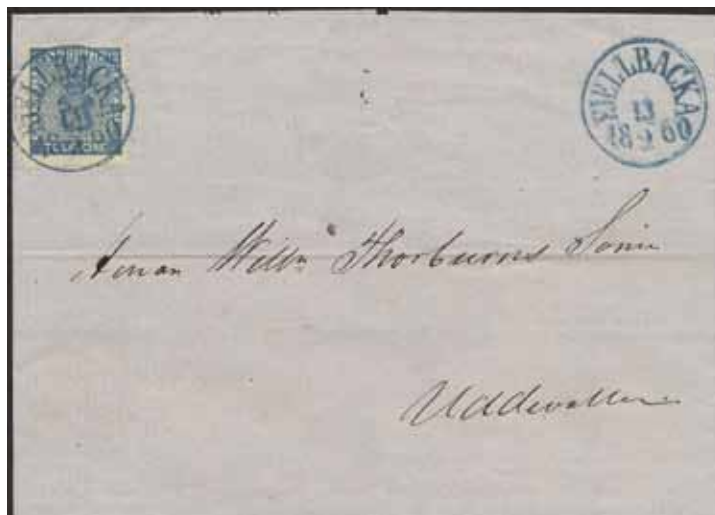 FJELLBACKA
13
TOLF ÖRE
FJELLBACKA
13
18 9 60
Willm Thorburns Söner
Uddevalla